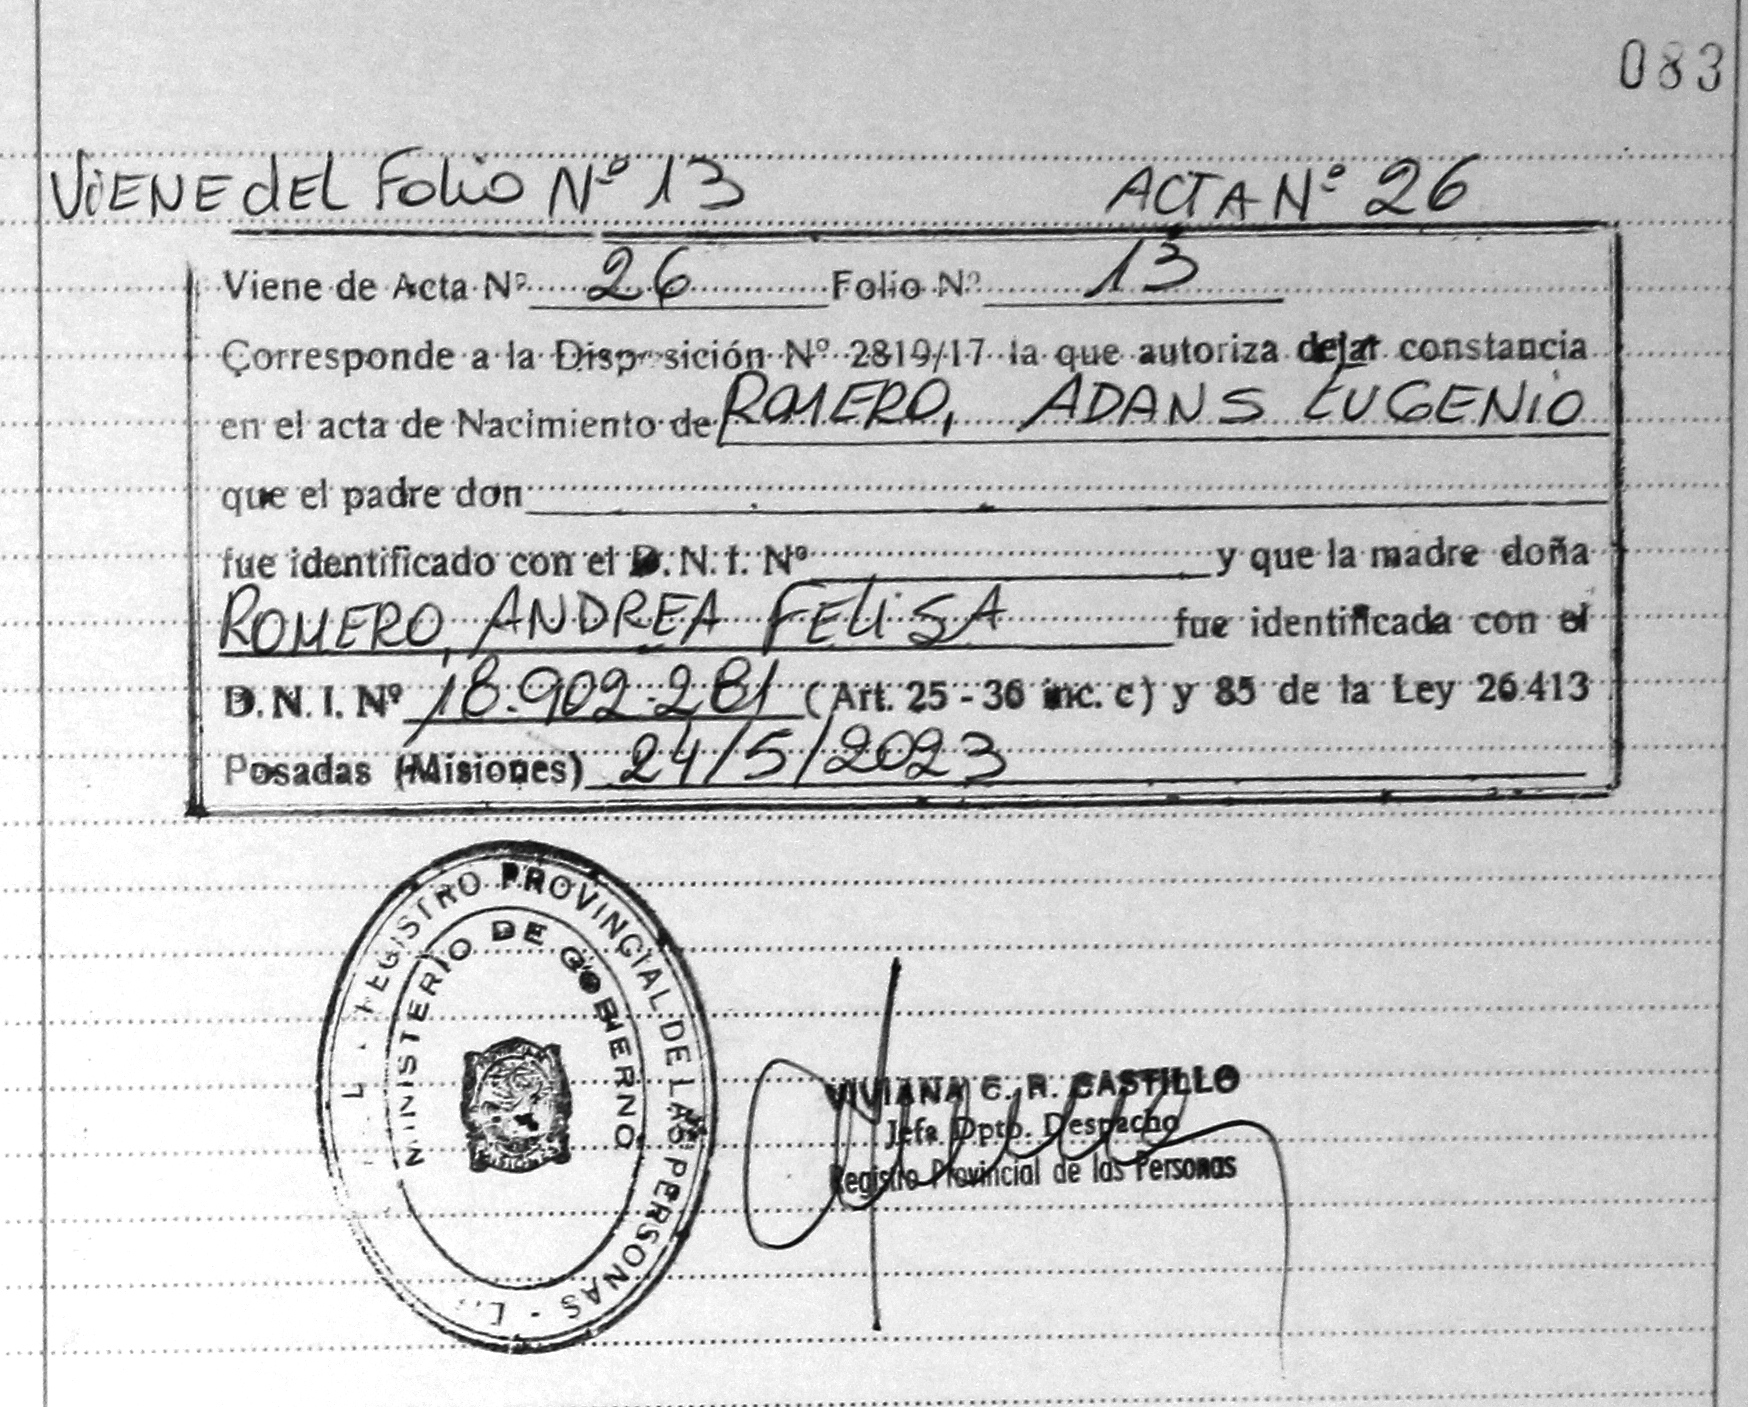 083
ViENE dEL Folio Nº 13 ACTA Nº 26
Viene de Acta Nº 26 Folio Nº 13
Corresponde a la Disposición Nº 2819/17 la que autoriza dejar constancia
en el acta de Nacimiento de ROMERO, ADANS EUGENiO
que el padre don
fue identificado con el D.N.I. Nº y que la madre doña
ROMERO, ANDREA FELiSA fue identificada con el
D.N.I. Nº 18.902.281 (Art. 25 - 36 inc. c) y 85 de la Ley 26.413
Posadas (Misiones) 24/5/2023
REGISTRO PROVINCIAL DE LAS PERSONAS
MINISTERIO DE GOBIERNO
VIVIANA C. R. CASTILLO
Jefa Dpto. Despacho
Registro Provincial de las Personas